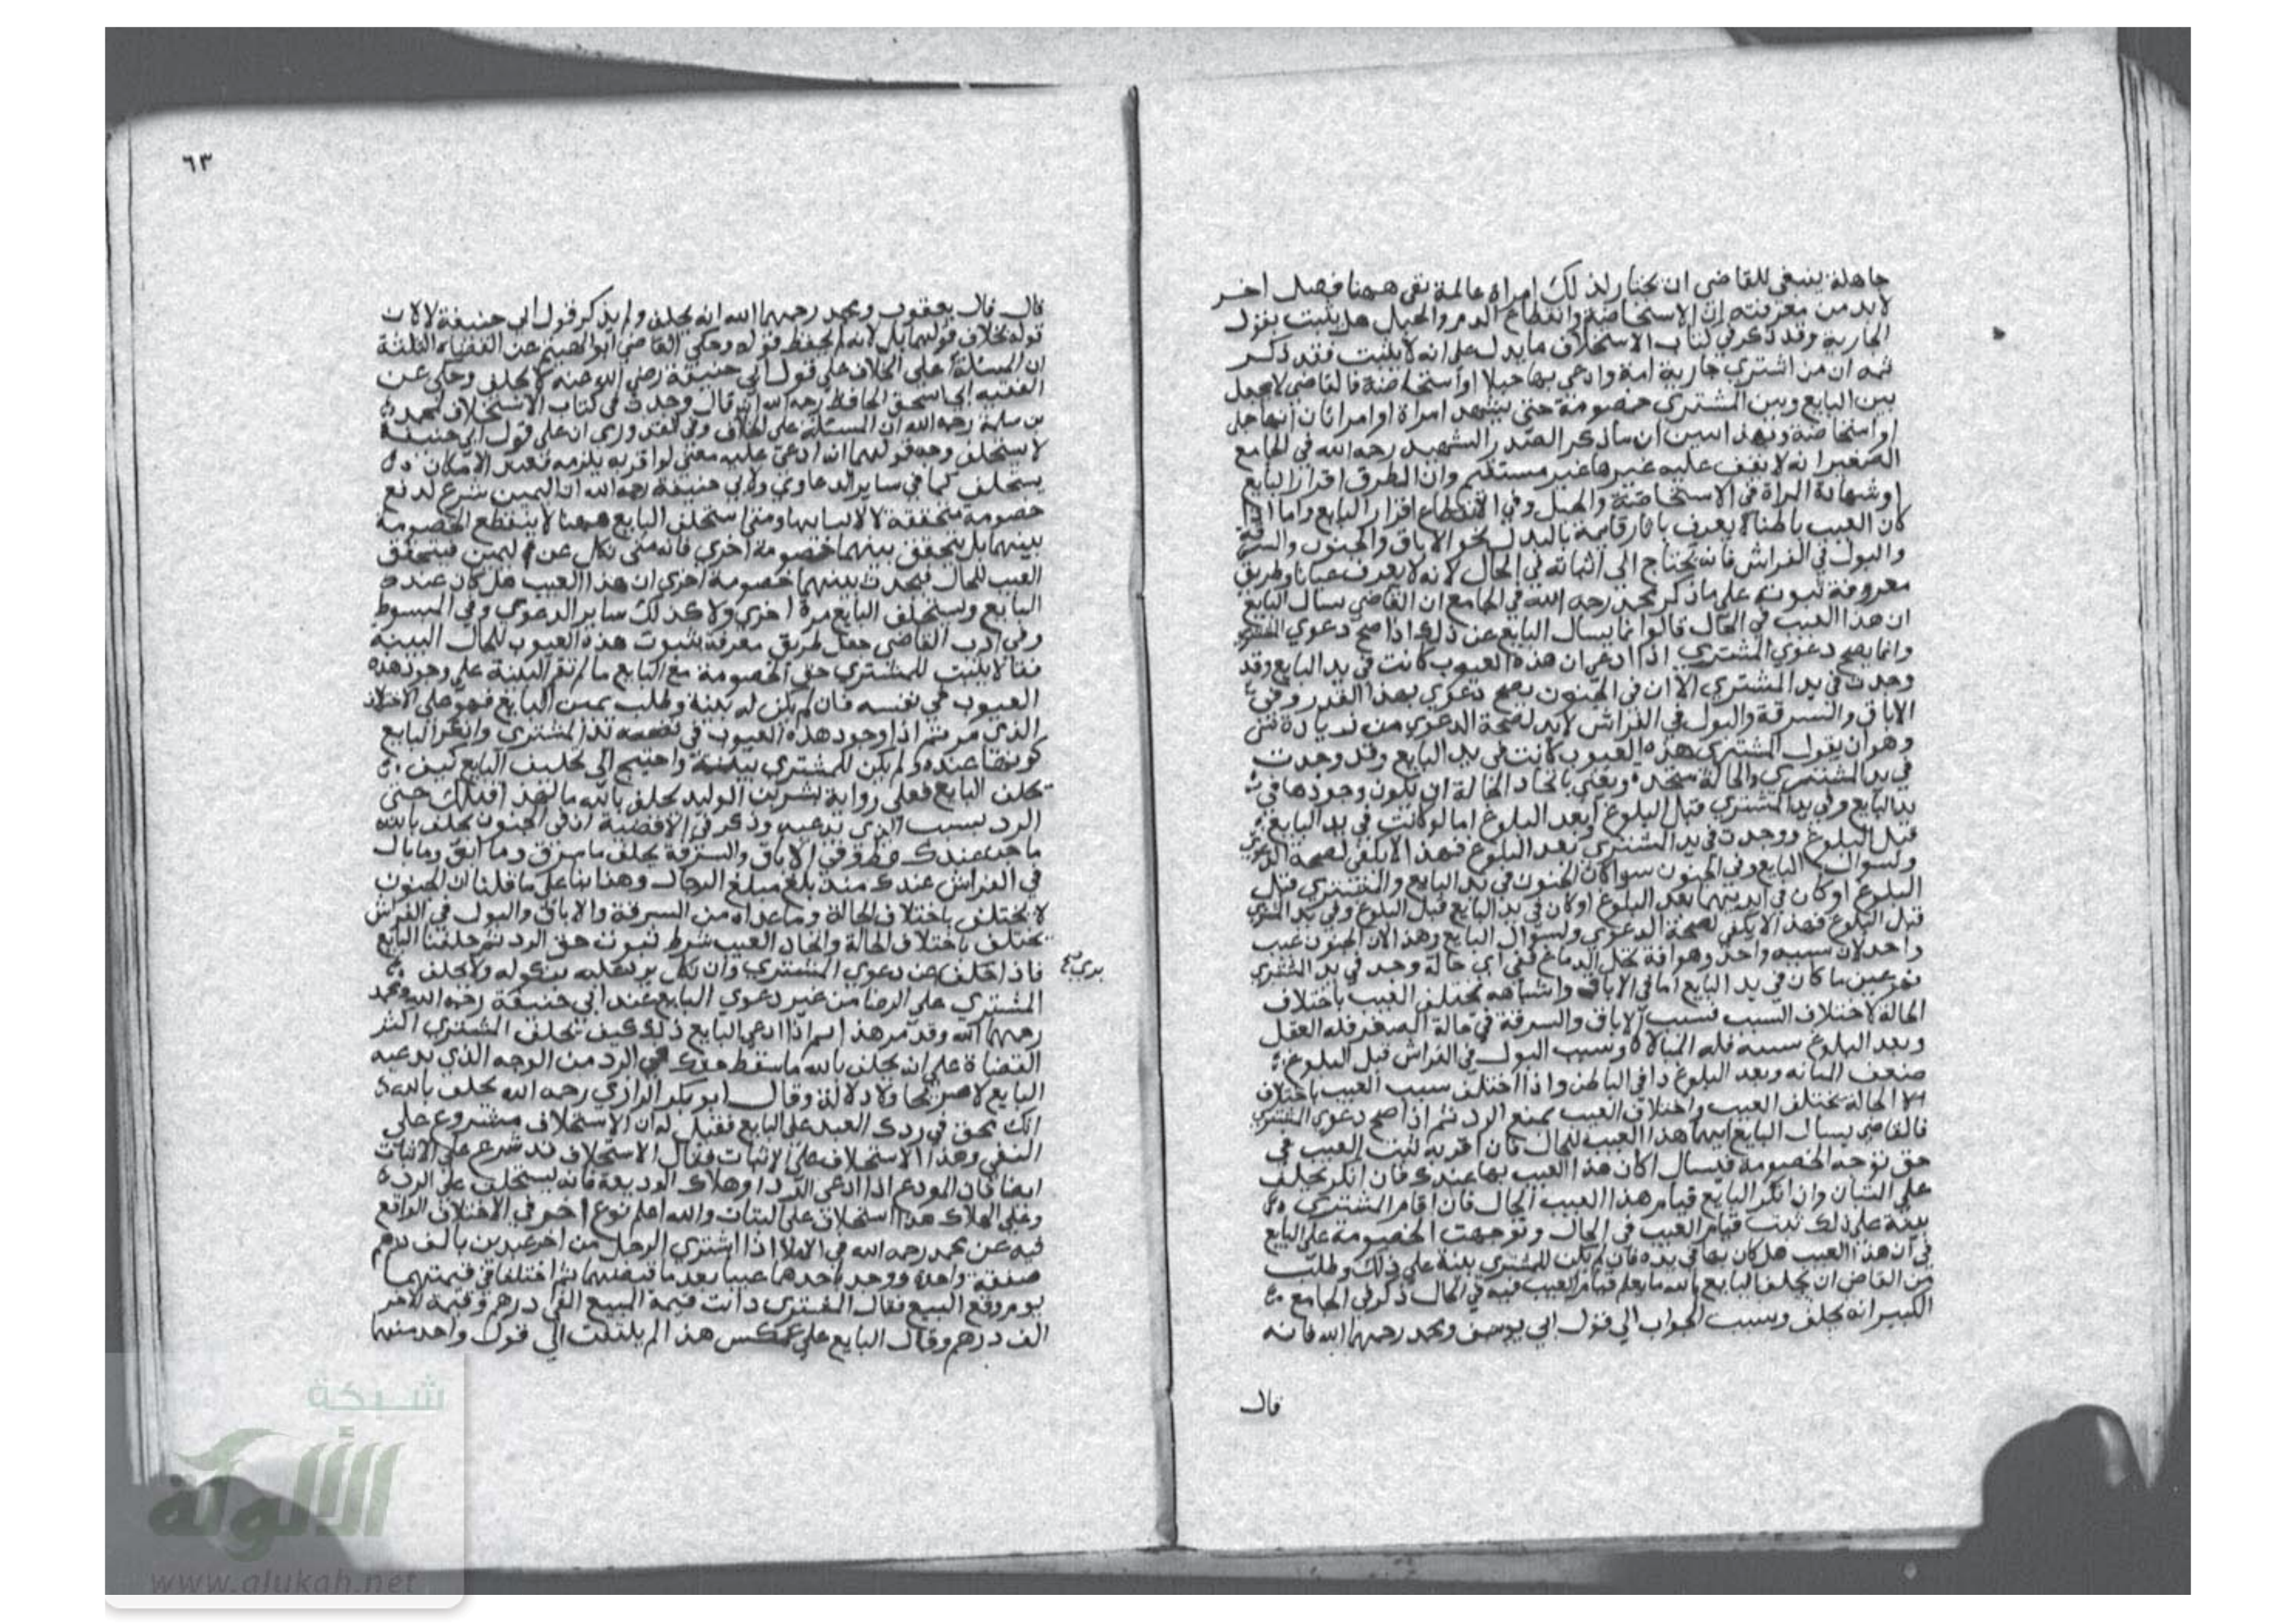 جاهلة ينبغي للقاضي ان يختار لذلك امراة عالمة بقي ههنا فصل اخر
لابد من معرفته ان الاستحاضة وانقطاع الدم والحبل هل يثبت بقول
الجارية وقد ذكر في كتاب الاستحلاف ما يدل على انه لا يثبت فقد ذكر
ثمه ان من اشتري جارية امة وادعي بها حبلا او استحاضة فالقاضي لا يجعل
بين البايع وبين المشتري خصومة حتى يشهد امراة او امراتان انها حبل
او استحاضة وبهذا تبين ان ما ذكر الصدر الشهيد رحمه الله في الجامع
الصغير انه لا يقف عليه غيرها غير مستقيم وان الطرق اقرار البايع
او شهادة المراة في الاستحاضة والحبل وفي الانقطاع اقرار البايع واما اذا
كان العيب باطنا لا يعرف باثار قايمة بالبدن نحو الاباق والجنون والسرقة
والبول في الفراش فانه يحتاج الى اثباته في الحال لانه لا يعرف عيانا وطريق
معروفة ثبوته على ما ذكر محمد رحمه الله في الجامع ان القاضي يسال البايع
ان هذا العيب في الحال قالوا انما يسال البايع عن ذلك اذا صح دعوي المشتري
وانما يصح دعوي المشتري اذا ادعي ان هذه العيوب كانت في يد البايع وقد
وجدت في يد المشتري الا ان في الجنون يصح دعوي بهذا القدر وفي
الاباق والسرقة والبول في الفراش لابد لصحة الدعوي من زيادة شي
وهو ان يقول المشتري هذه العيوب كانت في يد البايع وقد وجدت
في يد المشتري والحالة متحدة ويعني باتحاد الحالة ان يكون وجودها في
يد البايع وفي يد المشتري قبل البلوغ او بعد البلوغ اما لو كانت في يد البايع
قبل البلوغ ووجدت في يد المشتري بعد البلوغ فهذا لا يكفي لصحة الدعوي
ولسوال البايع وفي الجنون سوا كان الجنون في يد البايع والمشتري قبل
البلوغ او كان في ايديهما بعد البلوغ او كان في يد البايع قبل البلوغ وفي يد المشتري
قبل البلوغ فهذا لا يكفي لصحة الدعوي ولسوال البايع وهذا لان الجنون عيب
واحد لان سببه واحد وهو افة تحل الدماغ ففي اي حالة وجد في يد المشتري
فهو عين ما كان في يد البايع اما في الاباق واشباهه يختلف العيب باختلاف
الحالة لاختلاف السبب فسبب الاباق والسرقة في حالة الصغر قلة العقل
وبعد البلوغ سببه قلة المبالاة وسبب البول في الفراش قبل البلوغ
ضعف المثانه وبعد البلوغ دا في الباطن واذا اختلف سبب العيب باختلاف
الحالة يختلف العيب واختلاف العيب يمنع الرد ثم اذا صح دعوى المشتري
فالقاضي يسال البايع ابهما هذا العيب للحال فان اقر به ثبت العيب في
حق توجه الخصومة فيسال اكان هذا العيب بها عندك فان انكر يحلف
على البتات وان انكر البايع قيام هذا العيب الحال فان اقام المشتري
بينة على ذلك ثبت قيام العيب في الحال وتوجهت الخصومة على البايع
في ان هذا العيب هل كان بها في يده فان لم يكن للمشتري بينة على ذلك وطلب
من القاضي ان يحلف البايع بالله ما يعلم قيام العيب فيه في الحال ذكر في الجامع
الكبير انه يحلف وسبب الجواب الي قول ابي يوسف ومحمد رحمهما الله فانه
قال
٦٣
قال قال يعقوب ومحمد رحمهما الله انه يحلف ولم يذكر قول ابي حنيفة لا لان
قوله بخلاف قولهما بل لانه لم يحفظ قوله وحكي القاضي ابو الهيثم عن القضاة الثلثة
ان المسئلة على الخلاف على قول ابي حنيفة رضي الله عنه لا يحلف وحكى عن
الفقيه ابي اسحق الحافظ رحمه الله انه قال وجدت في كتاب الاستحلاف لمحمد
بن سلمة رحمه الله ان المسئلة على الخلاف وفي القدوري ان على قول ابي حنيفة
لا يستحلف وجه قولهما انه ادعى عليه معنى لو اقر به يلزمه فعند الانكار
يستحلف كما في ساير الدعاوي ولابي حنيفة رحمه الله ان اليمين شرع لدفع
خصومة متحققة لا لاثباتها ومتى استحلف البايع ههنا لا ينقطع الخصومة
بينهما بل يتحقق بينهما خصومة اخري فانه متى نكل عن اليمين فيتحقق
العيب للحال فيحدث بينهما خصومة اخرى ان هذا العيب هل كان عند
البايع ويستحلف البايع مرة اخري ولا كذلك ساير الدعوي وفي المبسوط
وفي ادب القاضي جعل طريق معرفة ثبوت هذه العيوب للحال البينة
فقالا يثبت للمشتري حق الخصومة مع البايع ما لم تقم البينة على وجود هذه
العيوب في نفسه فان لم يكن له بينة وطلب يمين البايع فهو على الاختلاف
الذي مر ثم اذا وجود هذه العيوب في يد المشتري وانكر البايع
كونها عنده ولم يكن للمشتري بينة واحتيج الى تحليف البايع كيف
يحلف البايع فعلى رواية بشر بن الوليد يحلف بالله ما لهذا قبلك حق
الرد بسبب الذي يدعيه وذكر في الاقضية ان في الجنون يحلف بالله
ما جن عندك قط وفي الاباق والسرقة يحلف ما سرق وما ابق وما بال
في الفراش عندك منذ بلغ مبلغ الرجال وهذا بنا على ما قلنا ان الجنون
لا يختلف باختلاف الحالة وما عداه من السرقة والاباق والبول في الفراش
يختلف باختلاف الحالة واتحاد العيب شرط ثبوت حق الرد ثم حلفنا البايع
فاذا حلف عن دعوي المشتري وان نكل يرد عليه بنكوله ولا يحلف
المشتري على الرضا من غير دعوي البايع عند ابي حنيفة رحمه الله ومحمد
رحمهما الله وقد مر هذا ثم اذا ادعى البايع ذلك كيف يحلف المشتري اكثر
القضاة على ان يحلف بالله ما سقط حقك في الرد من الوجه الذي يدعيه
البايع لا صريحا ولا دلالة وقال ابو بكر الرازي رحمه الله يحلف بالله
انك محق في ردك العبد على البايع فقيل له ان الاستحلاف مشروع على
النفي وهذا الاستحلاف على الاثبات فقال الاستحلاف قد شرع على الاثبات
ايضا فان المودع اذا ادعى الرد او هلاك الوديعة فانه يستحلف على الرد
وعلى الهلاك هذا استحلاف على البتات والله اعلم نوع اخر في الاختلاف الواقع
فيه عن محمد رحمه الله في الاملا اذا اشتري الرجل من اخر عبدين بالف درهم
صفقة واحدة ووجد باحدهما عيبا بعد ما قبضهما ثم اختلفا في قيمتهما
يوم وقع البيع فقال المشتري كانت قيمة المبيع الفي درهم وقيمة الاخر
الف درهم وقال البايع على عكس هذا لم يلتفت الي قول واحد منهما
شبكة
الألوكة
www.alukah.net